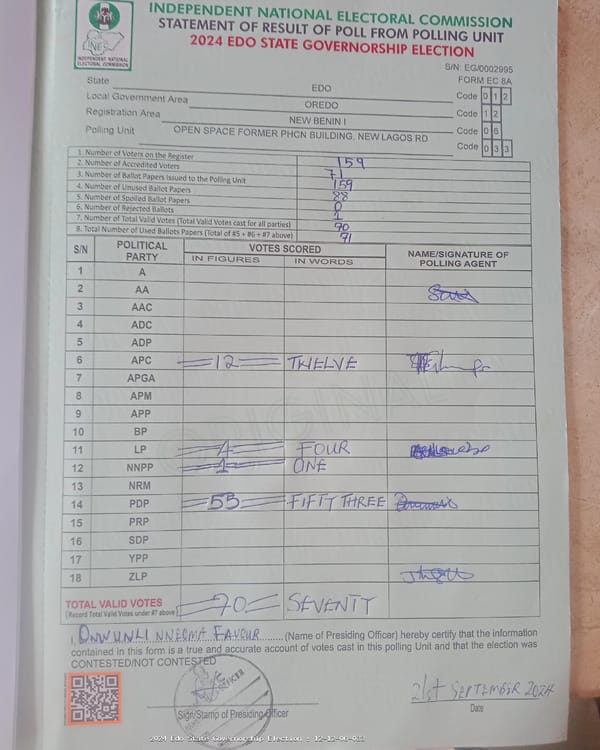 INEC
INDEPENDENT NATIONAL ELECTORAL COMMISSION
INDEPENDENT NATIONAL ELECTORAL COMMISSION
STATEMENT OF RESULT OF POLL FROM POLLING UNIT
2024 EDO STATE GOVERNORSHIP ELECTION
S/N: EG/0002995
FORM EC 8A
State EDO
Local Government Area OREDO Code 0 1 2
Registration Area NEW BENIN I Code 1 2
Polling Unit OPEN SPACE FORMER PHCN BUILDING, NEW LAGOS RD Code 0 6
Code 0 3 3
1. Number of Voters on the Register 159
2. Number of Accredited Voters 71
3. Number of Ballot Papers Issued to the Polling Unit 159
4. Number of Unused Ballot Papers 88
5. Number of Spoiled Ballot Papers 0
6. Number of Rejected Ballots 1
7. Number of Total Valid Votes (Total Valid Votes cast for all parties) 70
8. Total Number of Used Ballots Papers (Total of #5 + #6 + #7 above) 71
S/N POLITICAL PARTY VOTES SCORED NAME/SIGNATURE OF POLLING AGENT
IN FIGURES IN WORDS
1 A
2 AA
3 AAC
4 ADC
5 ADP
6 APC 12 TWELVE
7 APGA
8 APM
9 APP
10 BP
11 LP 4 FOUR
12 NNPP 1 ONE
13 NRM
14 PDP 53 FIFTY THREE
15 PRP
16 SDP
17 YPP
18 ZLP
TOTAL VALID VOTES 70 SEVENTY
(Record Total Valid Votes under #7 above)
I, ONWUNLI NNEOMA FAVOUR (Name of Presiding Officer) hereby certify that the information
contained in this form is a true and accurate account of votes cast in this polling Unit and that the election was
CONTESTED/NOT CONTESTED
21st SEPTEMBER 2024
Sign/Stamp of Presiding Officer Date
2024 Edo State Governorship Election : 12-12-06-033